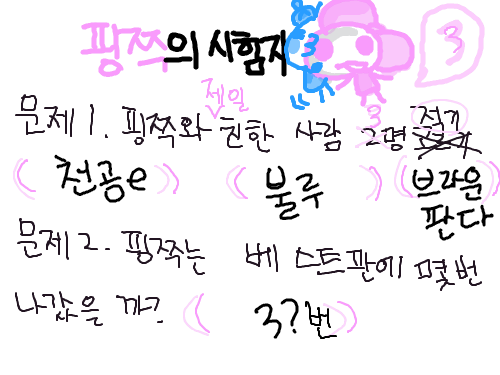 핑쪽의 시험지
3
3
문제 1. 핑쪽와 제일 친한 사람 2명 적기
3
( 천공e ) ( 불루 ) ( 브라운판다 )
문제 2. 핑쪽는 베스트판에 몇번
나갔은 까? ( 3?번 )